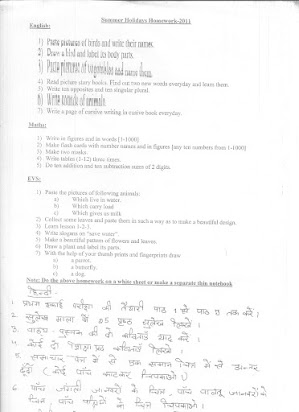 Summer Holidays Homework-2011
English:
1) Paste pictures of birds and write their names.
2) Draw a bird and label its body parts.
3) Paste pictures of vegetables and name them.
4) Read picture story books. Find out two new words everyday and learn them.
5) Write ten opposites and ten singular plural.
6) Write sounds of animals.
7) Write a page of cursive writing in cursive book everyday.
Maths:
1) Write in figures and in words [1-1000]
2) Make flash cards with number names and in figures [any ten numbers from 1-1000]
3) Make two masks.
4) Write tables (1-12) three times.
5) Do ten addition and ten subtraction sums of 2 digits.
EVS:
1) Paste the pictures of following animals:
a) Which live in water.
b) Which carry load
c) Which gives us milk
2) Collect some leaves and paste them in such a way as to make a beautiful design.
3) Learn lesson 1-2-3.
4) Write slogans on "save water".
5) Make a beautiful pattern of flowers and leaves.
6) Draw a plant and label its parts.
7) With the help of your thumb prints and fingerprint draw
a) a parrot.
b) a butterfly.
c) a dog.
Note: Do the above homework on a white sheet or make a separate thin notebook
हिन्दी-
1. प्रथम इकाई परीक्षा की तैयारी पाठ 1 से पाठ तक करें।
2. सुलेख माला के 05 पृष्ठ सुलेख लिखें।
3. पाठ्य पुस्तक की दो कविताएँ याद करें।
4. कोई दो कविताएँ लिखें।
5. में से
(कोई पाँच काटकर चिपकाओ)
6. पाँच जंगली जानवरों के चित्र, पाँच पालतू जानवरों के
चित्र, पाँच पक्षियों के चित्र चिपकाओ।